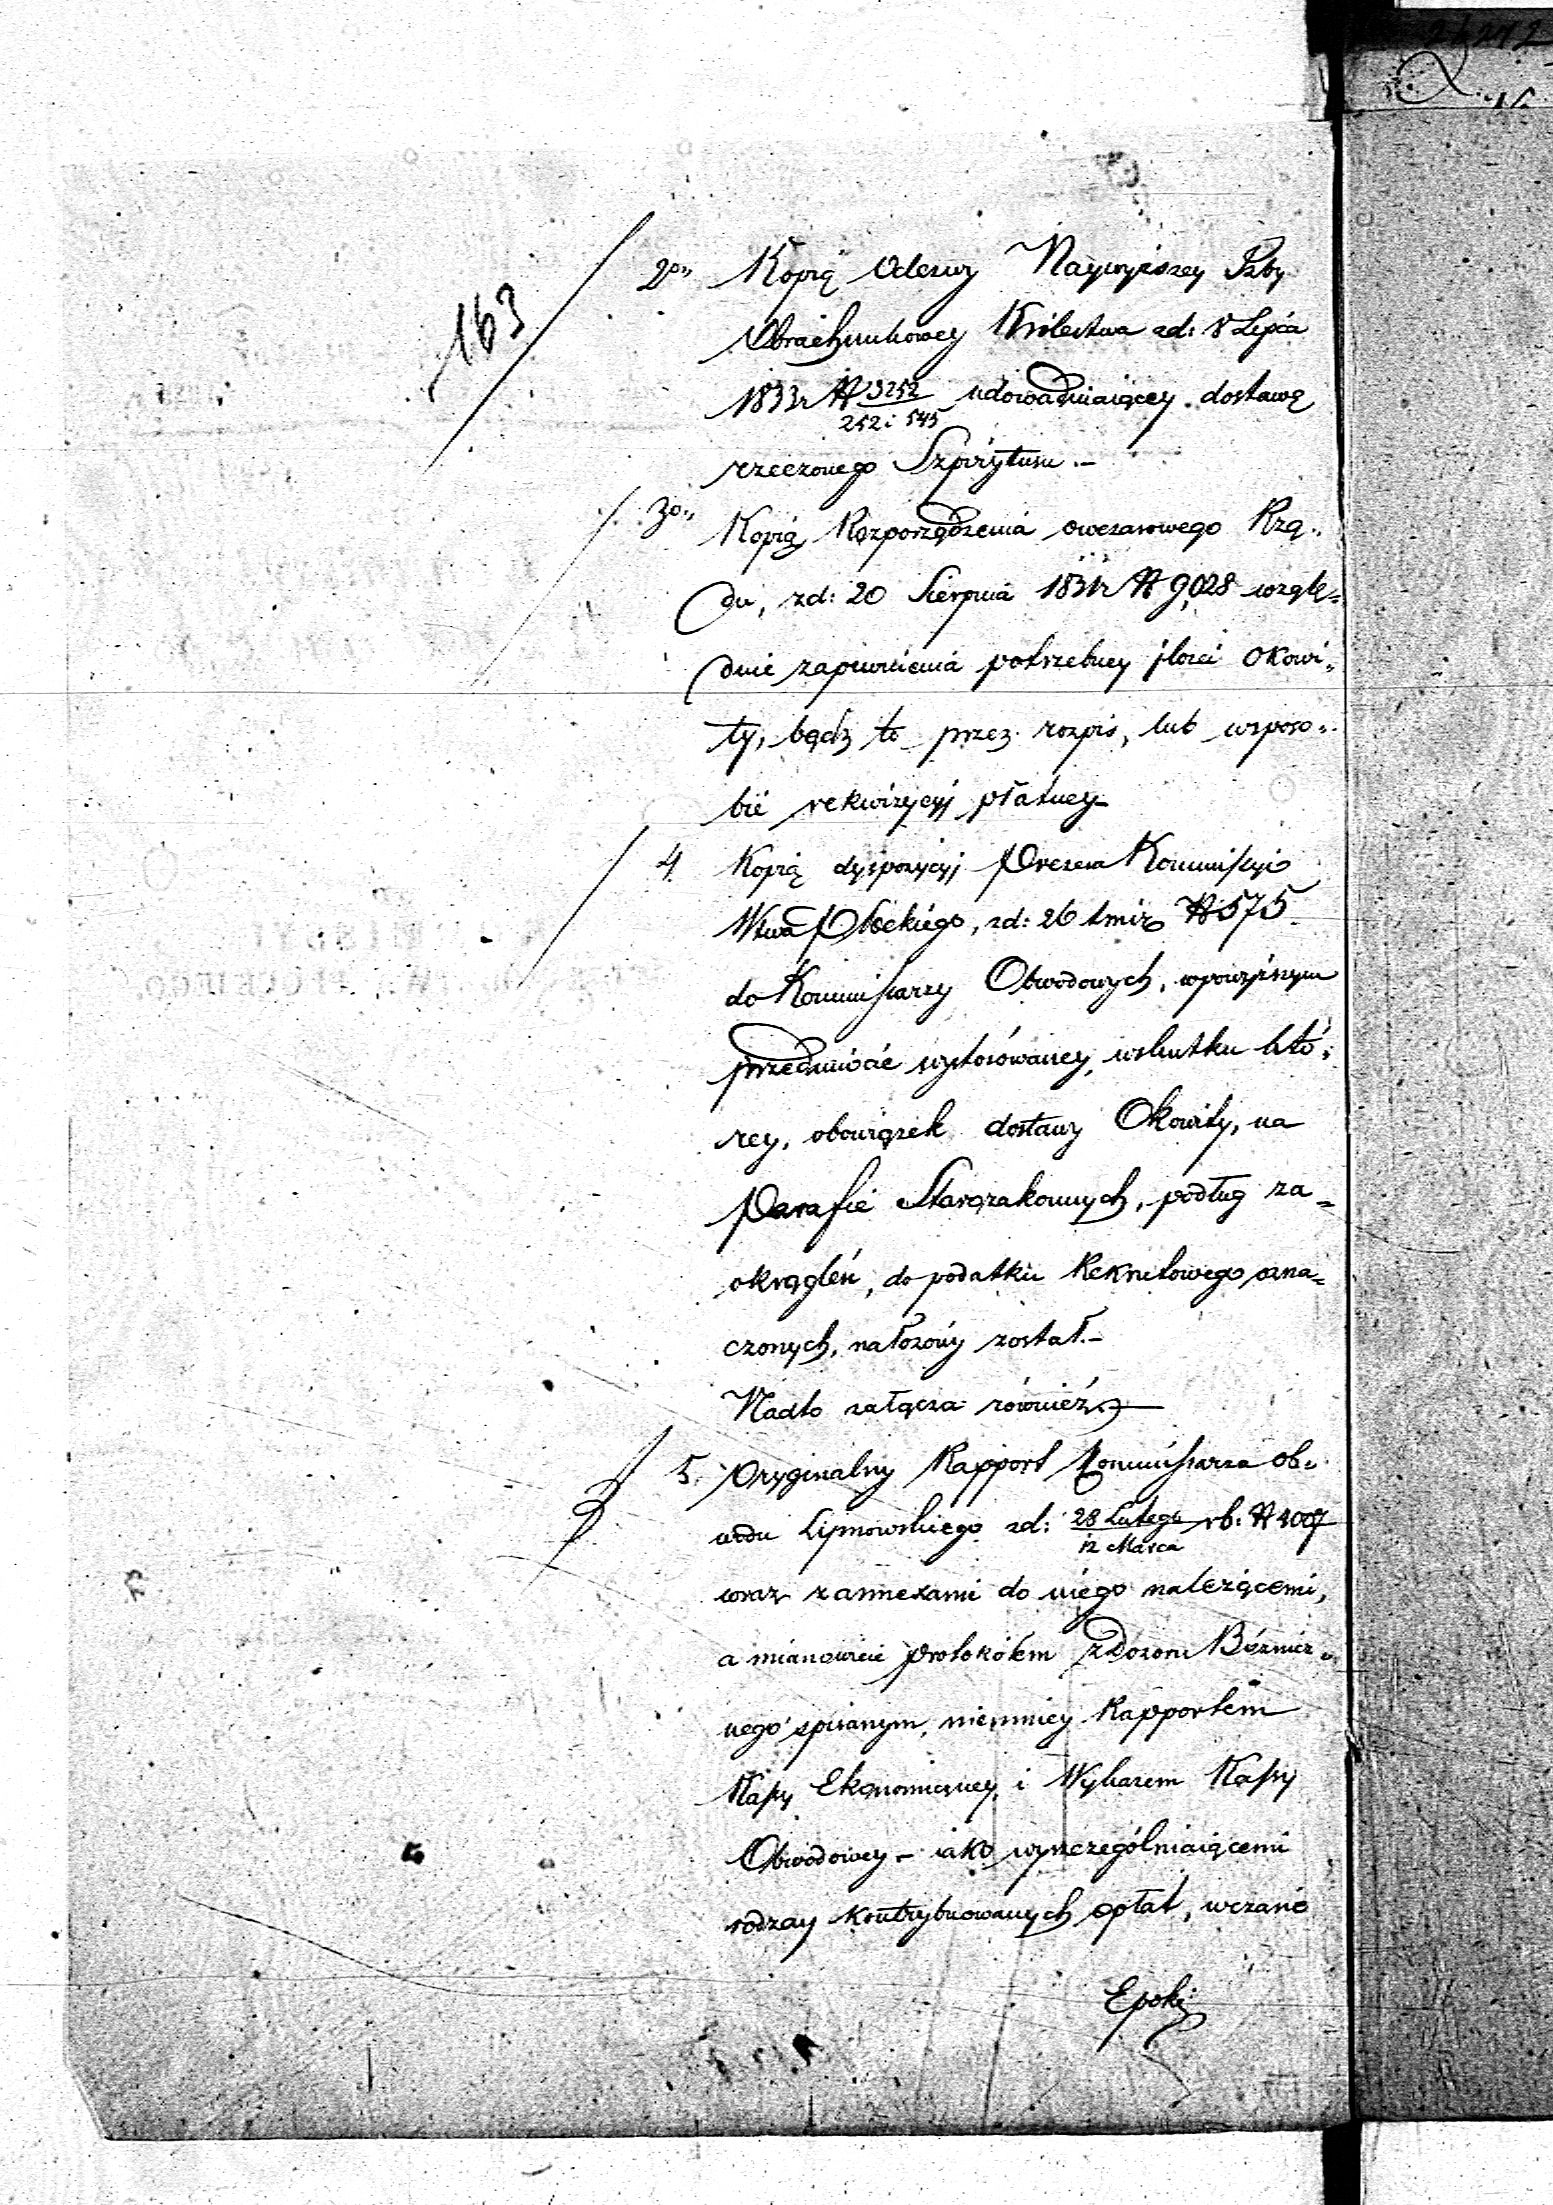 163
2o Kopią Odezwy Naywyższey Izby
Obrachunkowey Królestwa zd: 8 Lipca
1833r N 3252/252 i 545 udowadniaiącey dostawę
rzeczonego Szpirytusu.–
3o Kopią Rozporządzenia owczasowego Rzą-
du, zd: 20 Sierpnia 1831r N 9,028 wzglę-
dnie zapewnienia potrzebney jlości Okowi-
ty, bądz to przez rozpis, lub wsposo-
bie rekwizycyj płatney–
4. Kopią dyspozycyj Prezesa Kommissyi
Wtwa Płockiego, zd: 26 tmir N 575
do Kommissarzy Obwodowych, wpowyższym
przedmiocie wystosówaney, wskutku któ-
rey, obowiązek dostawy Okowity, na
Parafie Starozakonnych, podług za-
okrągleń, do podatku Rekrutowego ozna-
czonych, nałożony został.–
Nadto załącza również
5. Oryginalny Rapport Kommissarza ob-
wodu Lipnowskiego zd: 28 Lutego/12 Marca rb: N
wraz zannexami do niego należącemi,
a mianowicie protokółem zDozoru Bóżnicz-
nego spisanym, niemniey Rapportem
Kassy Ekonomiczney, i Wykazem Kassy
Obwodowey – iako wyszczególniaiącemi
rodzay kontrybuowanych opłat, wczasie
Epoki